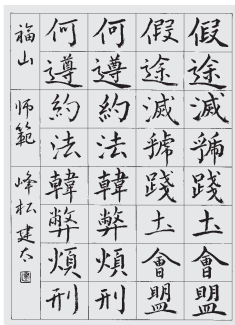 假途滅虢踐土會盟
假途滅虢踐土會盟
何遵約法韓弊煩刑
何遵約法韓弊煩刑
福山 师範 峰松建太